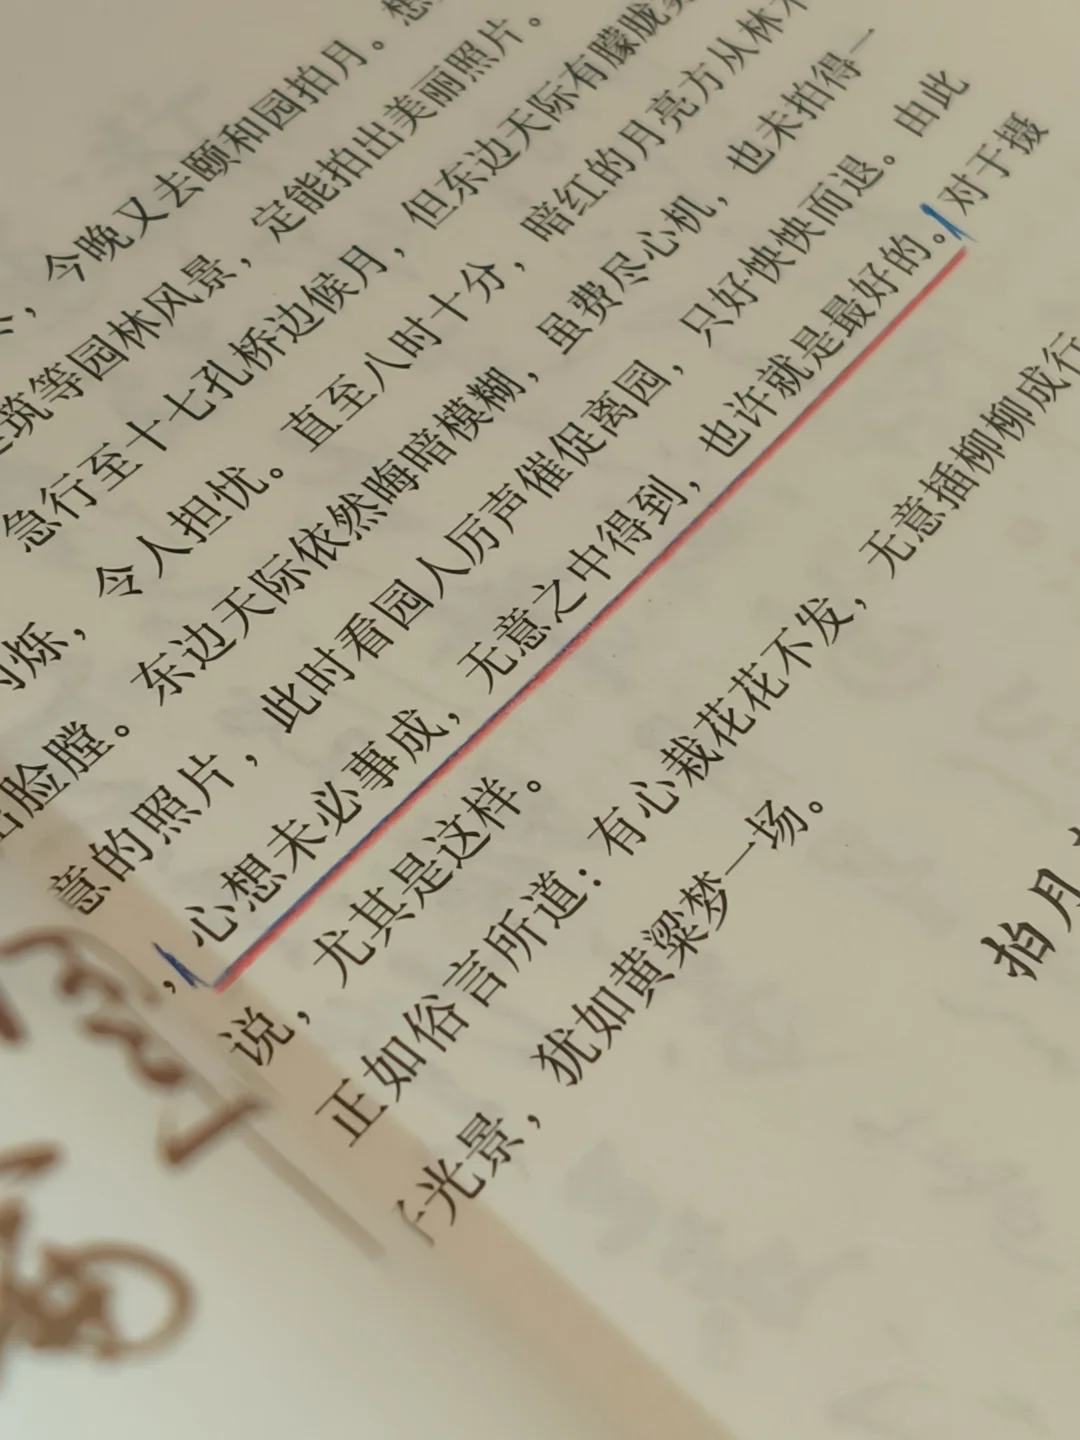 ，今晚又去颐和园拍月。想
筑等园林风景，定能拍出美丽照片。
急行至十七孔桥边候月，但东边天际有朦胧
烁，令人担忧。直至八时十分，暗红的月亮方从林
脸膛。东边天际依然晦暗模糊，虽费尽心机，也未拍得一
意的照片，此时看园人厉声催促离园，只好怏怏而退。由此
，心想未必事成，无意之中得到，也许就是最好的。对于摄
说，尤其是这样。
正如俗言所道：有心栽花花不发，无意插柳柳成行
光景，犹如黄粱梦一场。
拍月